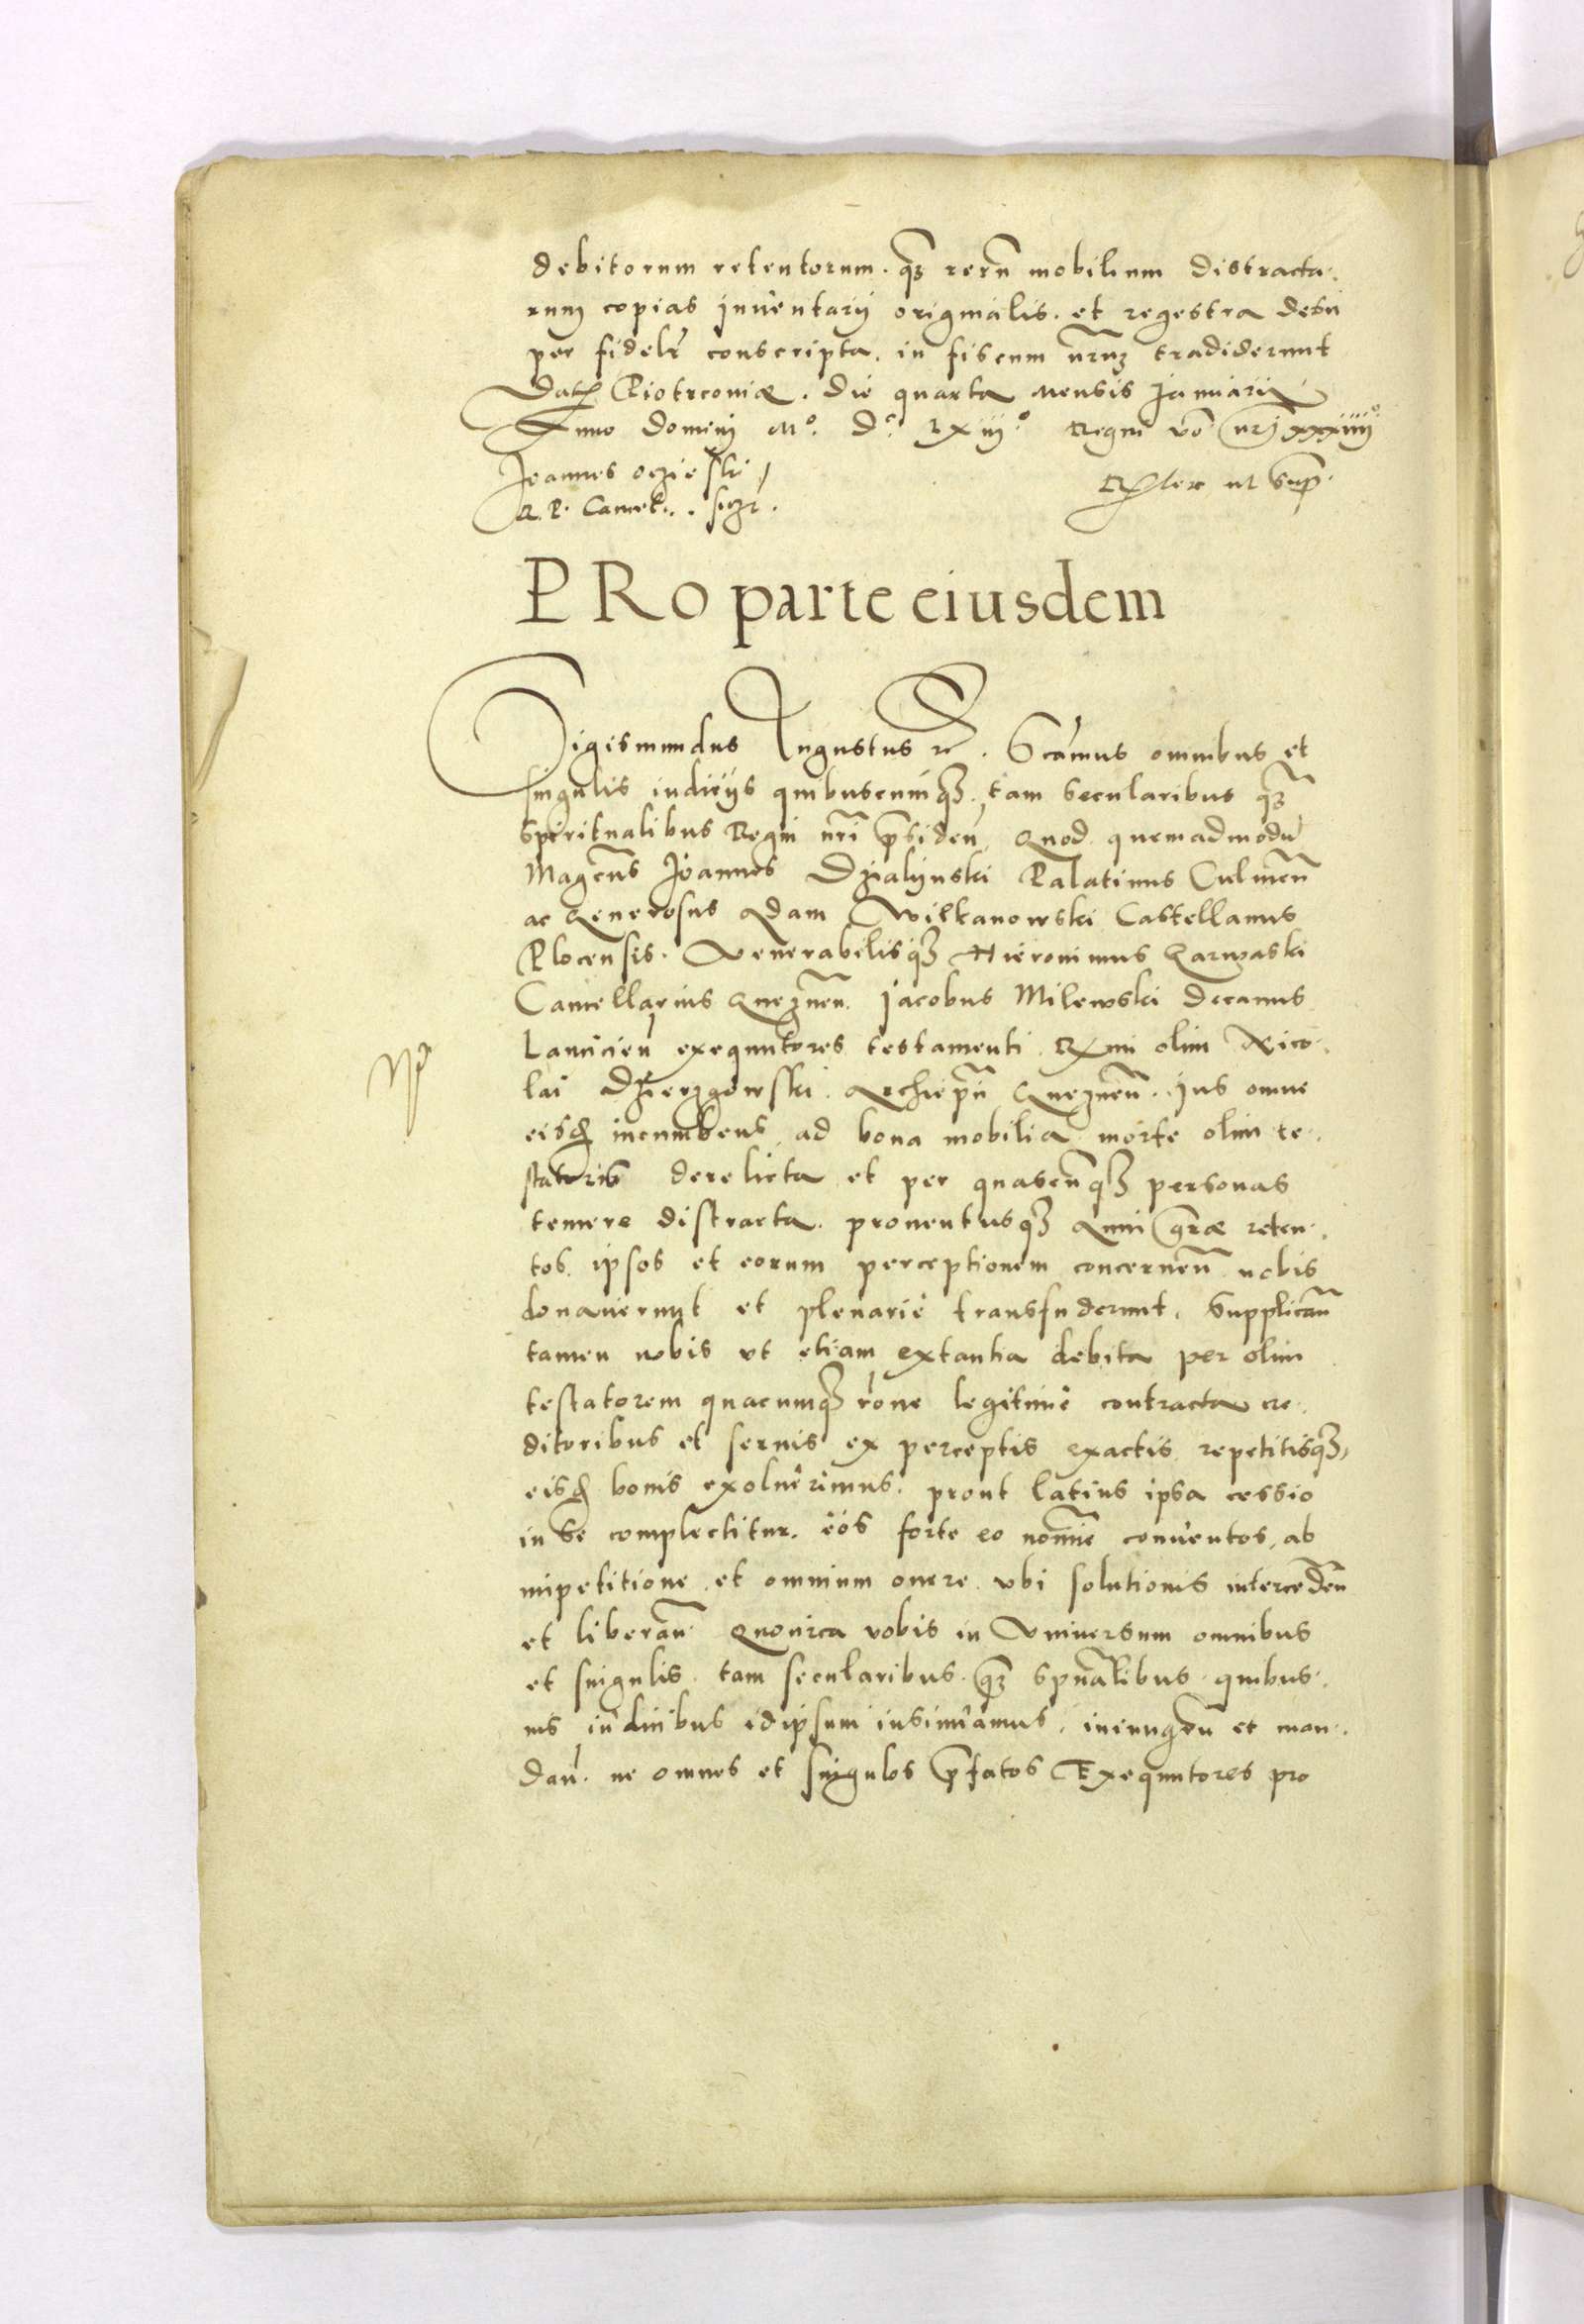 debitorum retentorum. q̃ȝ rerũ mobilium distracta-
rum copias jnuentarij originalis. et regestra desu
per fideľr conscripta. in fiscum nr̃uȝ tradiderunt
Dať Piotrconiæ. die quarta mensis Januarij
Anno Domini Mº. Dº. LXiijº. Regni vẽ nr̃j xxxiiijº
Joannes oczieski
R. P. Cancell. sszt.
R̃ler ut supr̃.
PRO parte eiusdem
Sigismundus Augustus ꝛc. Scãmus omnibus et
singulis iudicijs quibuscunqȝ. tam secularibus q̃ȝ
spiritualibus Regni nr̃i p̃siden̄, Quod quemadmodũ
Magc̃us Joannes Dzialijnski Palatinus Culmeñ
ac Generosus Adam Wilkanowski Castellanus
Plocensis. VenerabilisqȜ Hieronimus Garwaski
Cancellarius Gnezneñ. Jacobus Milewski Decanus
Lancicieñ exequutores testamenti R̃mi olim Nico-
lai Dzierzgowski. Archiep̃ñ Gnezneñ. jus omne
eisď incumbens ad bona mobilia morte olim te-
statoris derelicta et per quascũqȝ personas
temere distracta. prouentusqȝ Anni gr̃æ reten-
tos. ipsos et eorum perceptionem concerneñ nobis
donauerunt et plenarie transfuderunt. Supplicañ
tamen nobis vt etiam extantia debita per olim
testatorem quacumqȝ rõne legitime contracta cre-
ditoribus et seruis ex perceptis exactis repetitisqȝ
eisď bonis exoluerimus. prout latius ipsa cessio
in se complectitur. eos forte eo nom̃ie conuentos, ab
impetitione et omnium onere vbi solutionis intercedeñ
et liberañ. Quocirca vobis in Vniuersum omnibus
et singulis tam secularibus. q̃ȝ spũalibus quibus-
uis iudicibus idipsum insinuamus, iniungeñ et man-
dañ. ne omnes et singulos p̃fatos Exequutores pro